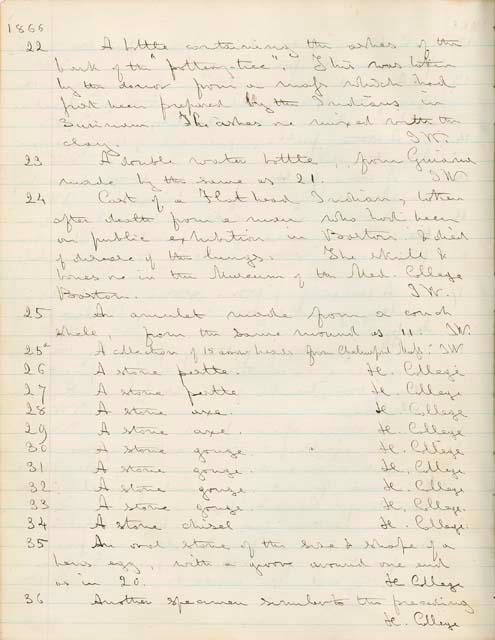 1866
22 A bottle containing the ashes of the
bark of the "pottery-tree". This was taken
by the donor from a mass which had
first been prepared by the Indians in
Surinam. The ashes are mixed with the
clay. J.W.
23 A double water bottle, from Guiana
made by the same as 21. J.W.
24 Cast of a Flat head Indian, taken
after death from a man who had been
on public exhibition in Boston & died
of disease of the lungs. The skull &
bones are in the Museum of the Med. College
Boston. J.W.
25 An amulet made from a conch
shell, from the same mound as 11 J.W.
25a A collection of 18 arrow heads from Chelmsford Mass. J.W
26 A stone pestle H. College
27 A stone pestle H. College
28 A stone axe. H. College
29 A stone axe. H. College
30 A stone gouge. H. College
31 A stone gouge. H. College
32 A stone gouge H. College
33 A stone gouge. H. College.
34 A stone chisel H. College.
35 An oval stone of the size & shape of a
hens egg, with a groove around one end
as in 20. H. College
36 Another specimen similar to the preceding
H. College